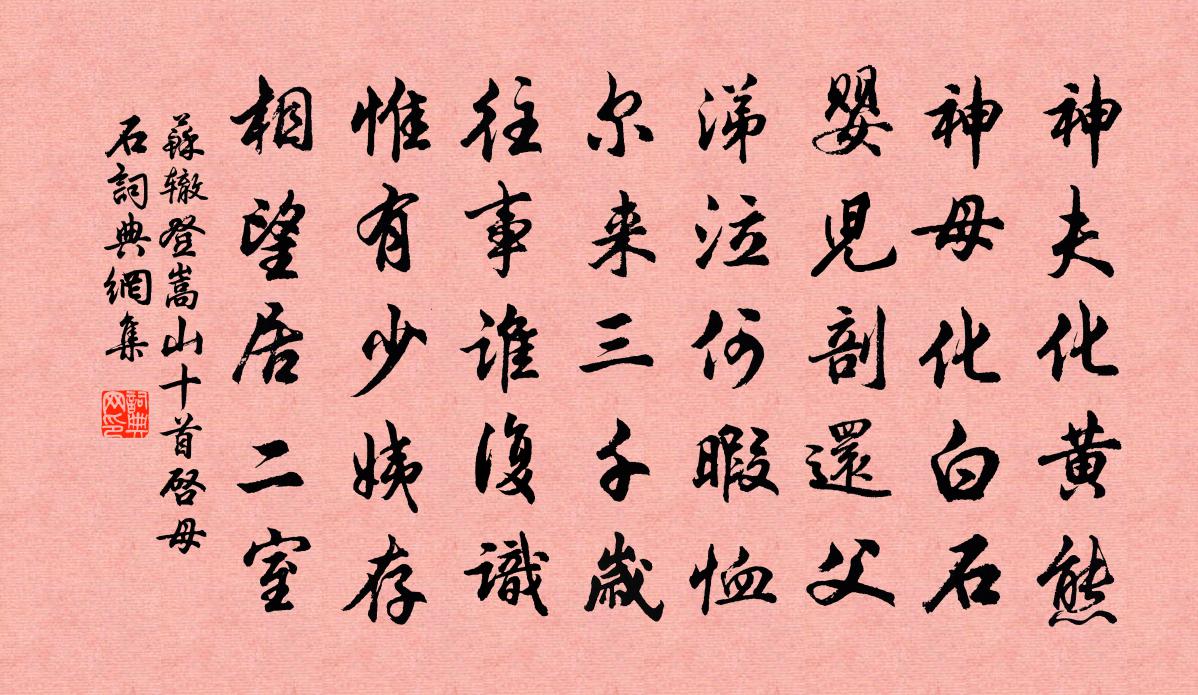 神夫化黄熊
神母化白石
嬰児剖還父
涕泣何暇恤
尔来三千歳
往事誰復識
惟有少姨存
相望居二室
蘇辙登嵩山十首啓母
石詞典網集
詞典网印